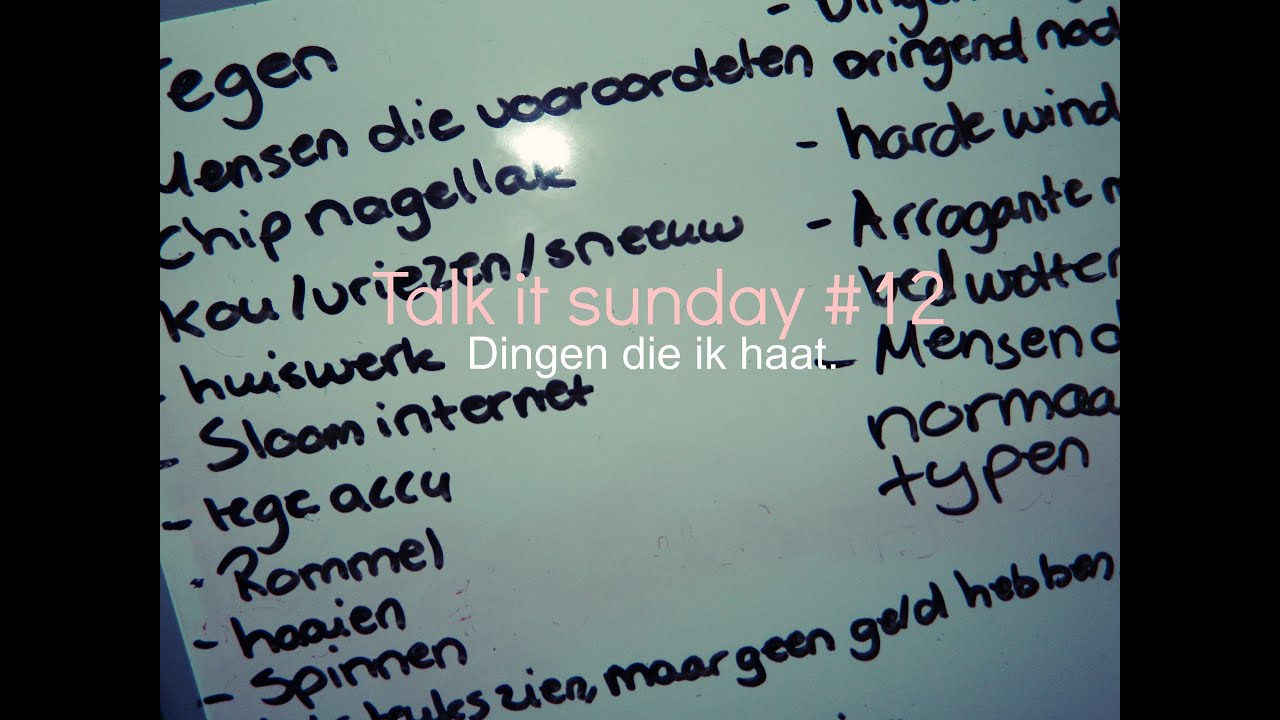 Regen
Mensen die vooroordelen
Chip nagellak
Kou/vriezen/sneeuw
- huiswerk
- Sloom internet
- lege accu
- Rommel
- haaien
- Spinnen
leuks zien, maar geen geld hebben
dringend nod
- harde wind
- Arrogante m
bed wotter
- Mensen d
normaa
typen
Talk it sunday #12
Dingen die ik haat.